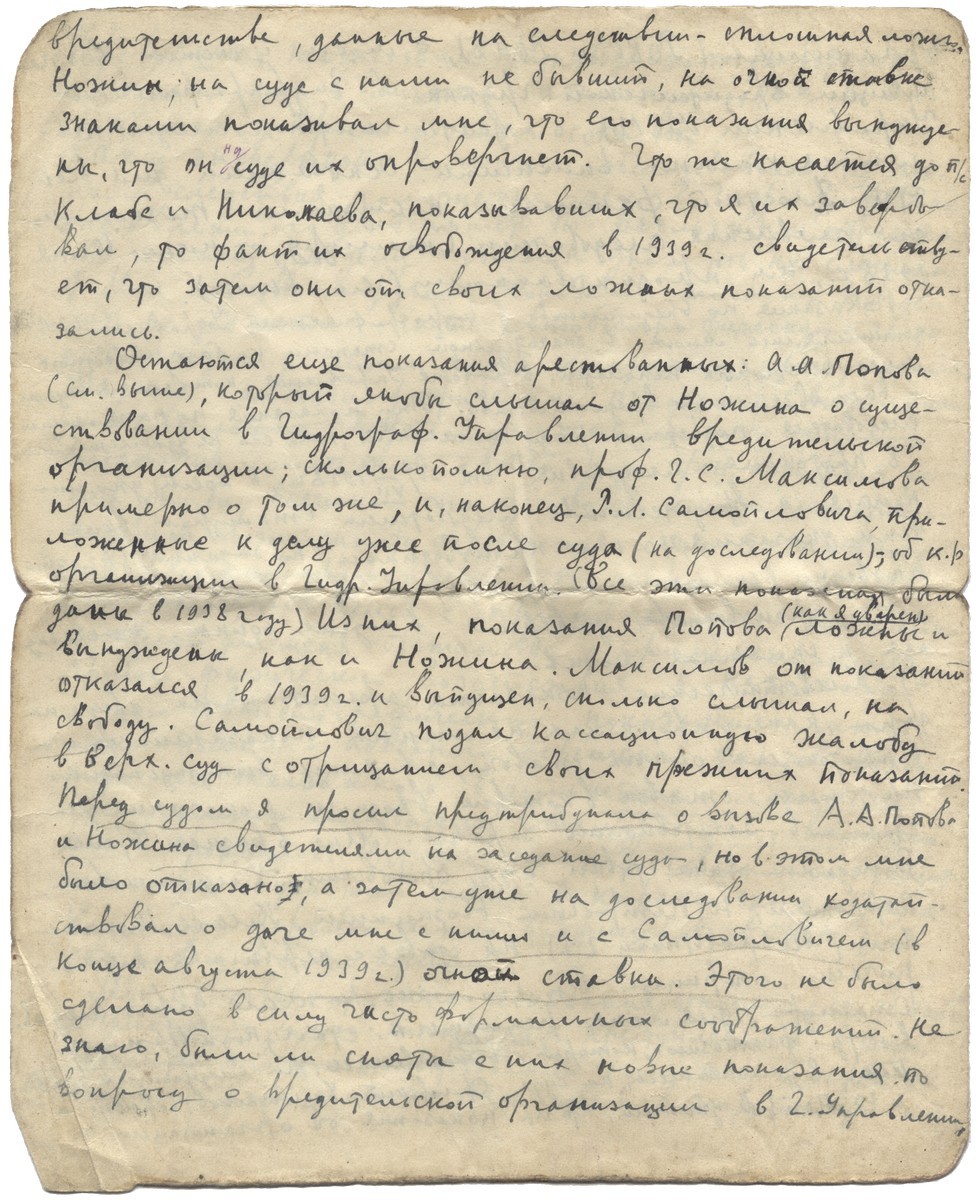 вредительстве, данные на следствии - сплошная ложь.
Ножин, на суде с нами не бывший, на очной ставке
знаками показывал мне, что его показания вынужде-
ны, что он на суде их опровергнет. Что же касается до п/с
Клабе и Николаева, показывавших, что я их завербо-
вал, то факт их освобождения в 1939 г. свидетельству-
ет, что затем они от своих ложных показаний отка-
зались.
Остаются еще показания арестованных: А.А. Попова
(см. выше), который якобы слышал от Ножина о суще-
ствовании в Гидрограф. Управлении вредительской
организации; сколько помню, проф. Г.С. Максимова
примерно о том же, и, наконец, Р.Л. Самойловича, при-
ложенные к делу уже после суда (на доследовании), об к.р.
организации в Гидр. Управлении. (Все эти показания были
даны в 1938 году) Из них, показания Попова (как я уверен) ложны и
вынуждены, как и Ножина. Максимов от показаний
отказался в 1939 г. и выпущен, сколько слышал, на
свободу. Самойлович подал кассационную жалобу
в Верх. суд с отрицанием своих прежних показаний.
Перед судом я просил предтрибунала о вызове А.А. Попова
и Ножина свидетелями на заседание суда, но в этом мне
было отказано, а затем уже на доследовании ходатай-
ствовал о даче мне с ними и с Самойловичем (в
конце августа 1939 г.) очной ставки. Этого не было
сделано в силу чисто формальных соображений. Не
знаю, были ли сняты с них новые показания по
вопросу о вредительской организации в Г. Управлении,